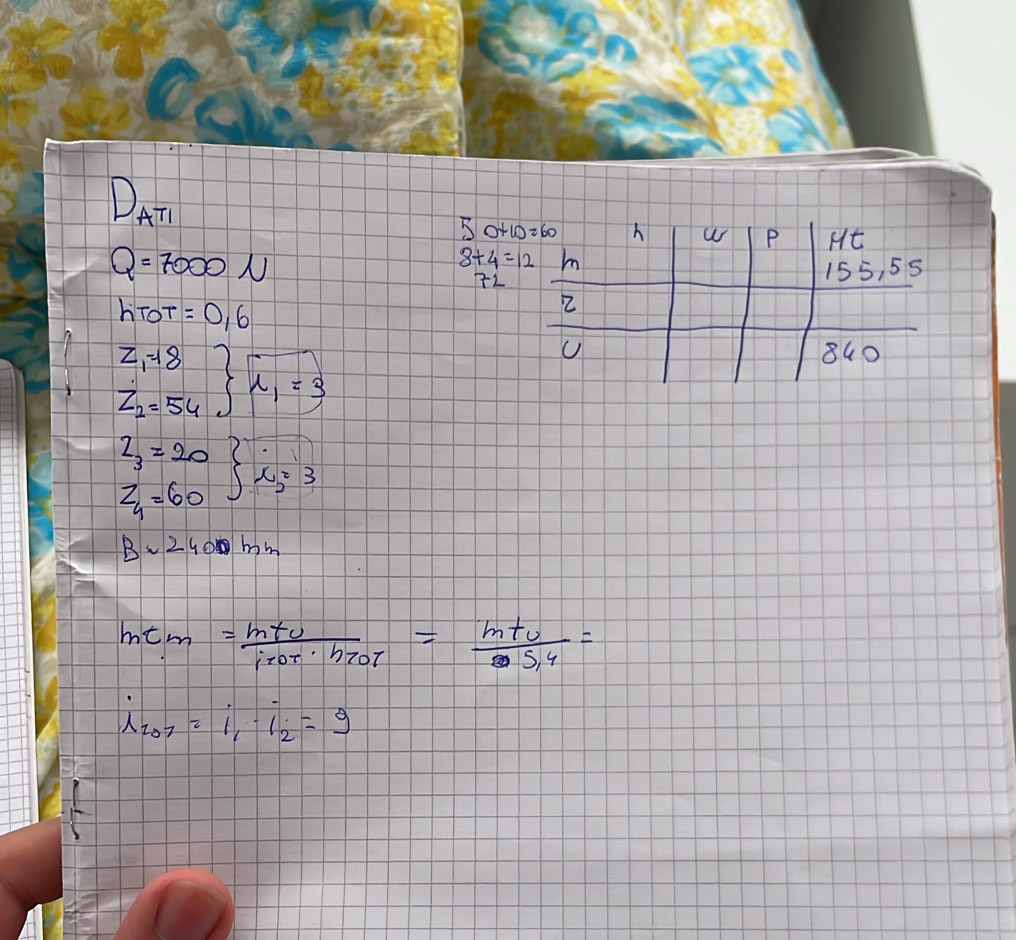 DATI
Q = 7000 N
hTOT = 0,6
Z1=18
Z2=54
i1 = 3
Z3 = 20
Z4 = 60
i2 = 3
B = 2400 mm
50+10=60
8+4=12
72
n w P Mt
m 155,55
2
U 840
mtm = mtu / iTOT . hTOT = mtu / 5,4 =
iTOT = i1 . i2 = 9